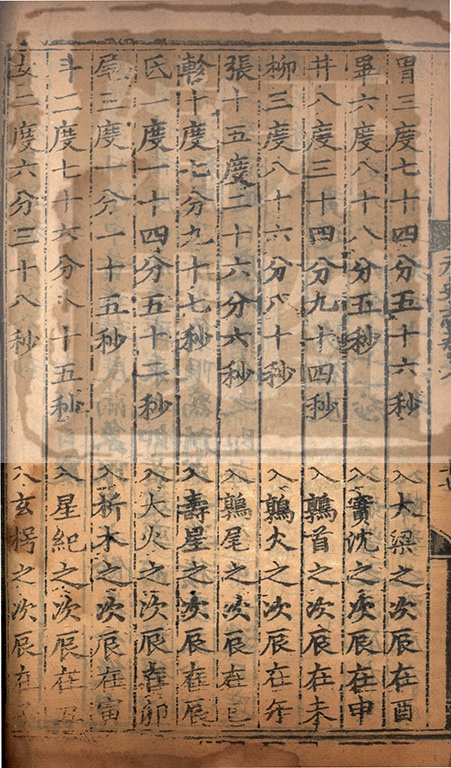 胃三度七十四分五十六秒　入大梁之次辰在酉
畢六度八十八分五秒　入實沈之次辰在申
井八度三十四分九十四秒　入鶉首之次辰在未
柳三度八十六分八十秒　入鶉火之次辰在午
張十五度二十六分六秒　入鶉尾之次辰在巳
軫十度七分九十七秒　入壽星之次辰在辰
氐一度一十四分五十二秒　入大火之次辰在卯
尾三度一分一十五秒　入析木之次辰在寅
斗度七十六分八十五秒　入星紀之次辰在丑
女二度六分三十八秒　入玄枵之次辰在子